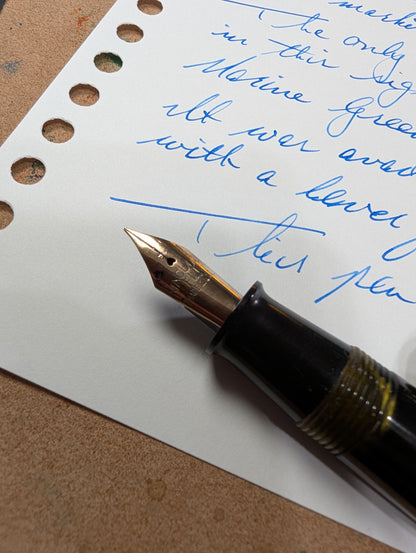 marki
The only
in this sig
Marine Gree
It was avai
with a lever
This pen